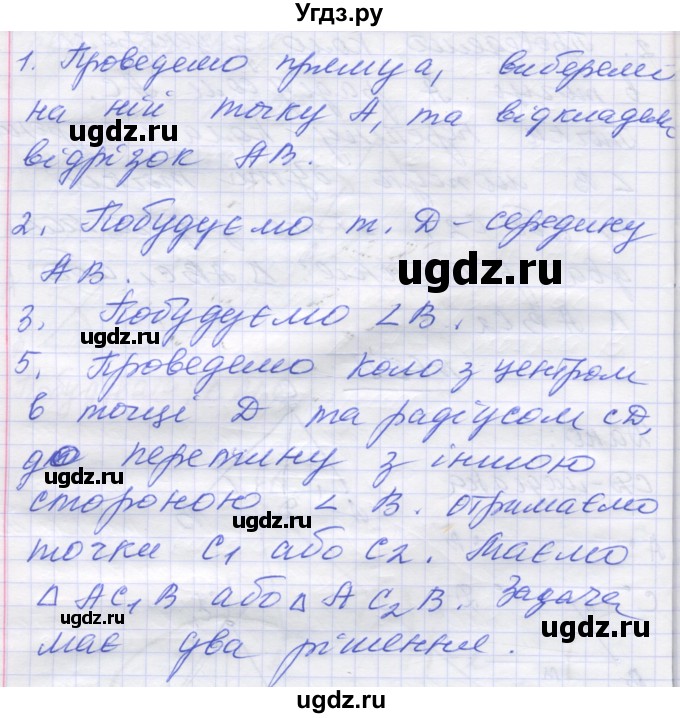 Угдз.ру
1. Проведемо пряму а, виберемо
на ній точку А, та відкладем
відрізок АВ.
2. Побудуємо т. D - середину
АВ.
3. Побудуємо ∠В.
5. Проведемо коло з центром
в точці D та радіусом CD,
до перетину з іншою
стороною ∠ В. отримаємо
точки C₁ або C₂. Маємо
△ AC₁B або △ AC₂B. Задача
має два рішення.
ugdz.ru
ugdz.ru
ugdz.ru
ugdz.ru
ugdz.ru
ugdz.ru
ugdz.ru
ugdz.ru